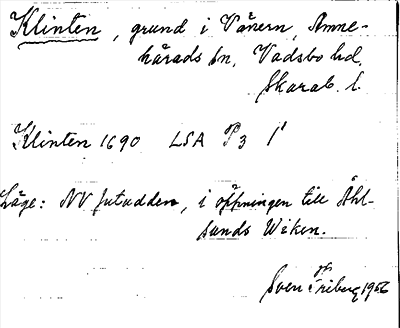 Klinten, grund i Vänern, Amne-
härads sn, Vadsbo hd,
Skarab. l.
Klinten 1690 LSA P3 1¹
Läge: NV  i öppningen till Åhl-
sunds Wiken.
Sven Friberg 1956